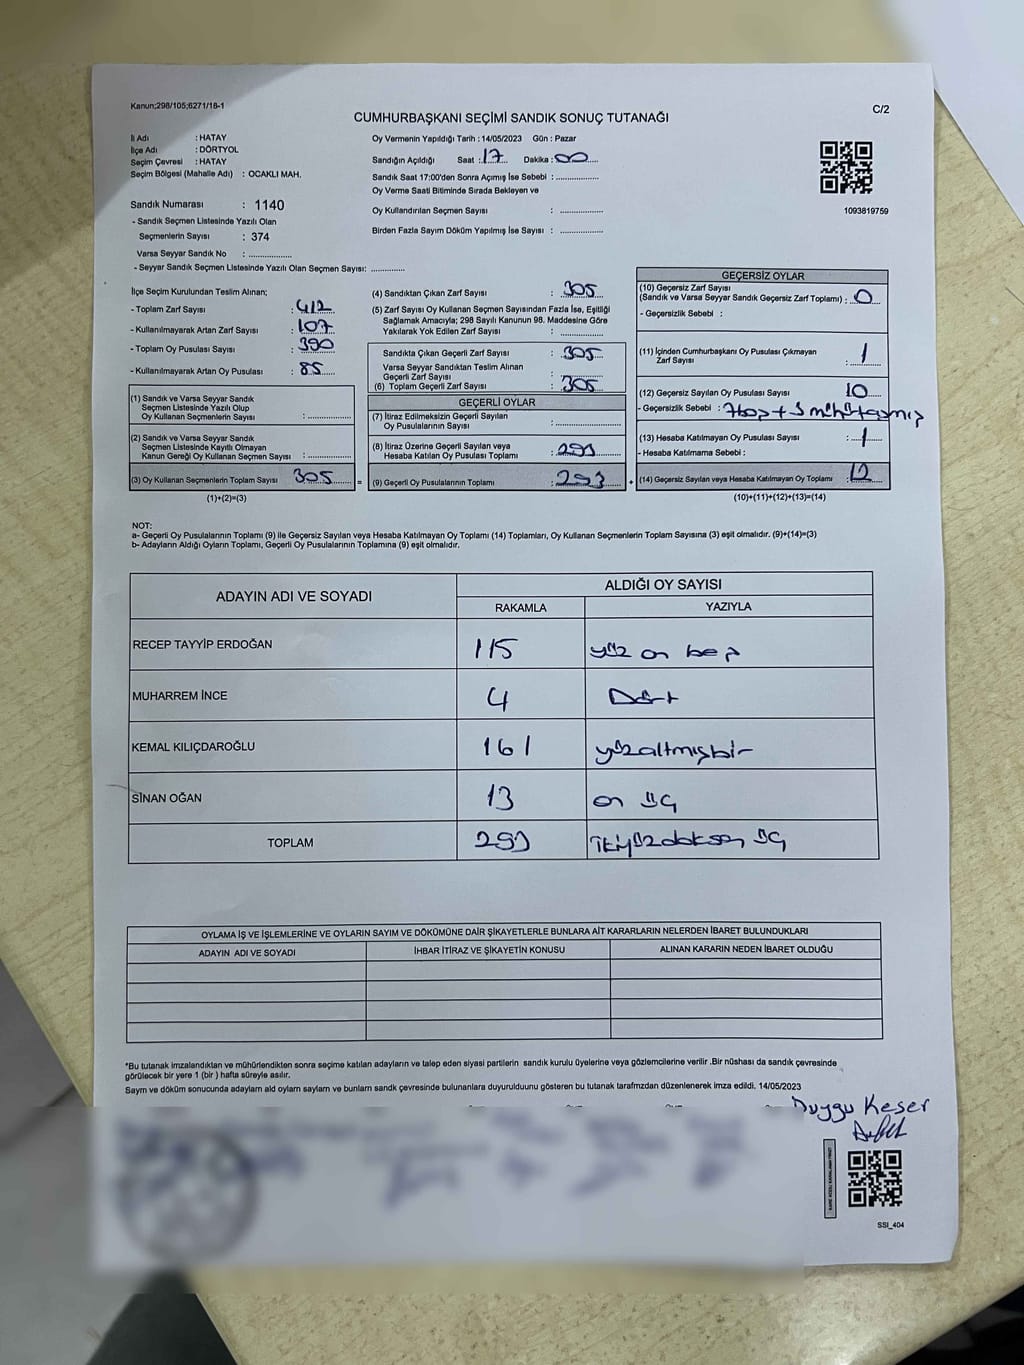 Kanun;298/105;6271/18-1
C/2
CUMHURBAŞKANI SEÇİMİ SANDIK SONUÇ TUTANAĞI
İl Adı : HATAY
İlçe Adı : DÖRTYOL
Seçim Çevresi : HATAY
Seçim Bölgesi (Mahalle Adı) : OCAKLI MAH.
Sandık Numarası : 1140
- Sandık Seçmen Listesinde Yazılı Olan
Seçmenlerin Sayısı : 374
Varsa Seyyar Sandık No : ..............
- Seyyar Sandık Seçmen Listesinde Yazılı Olan Seçmen Sayısı: ............
Oy Vermenin Yapıldığı Tarih : 14/05/2023 Gün : Pazar
Sandığın Açıldığı Saat : 17 Dakika : 00
Sandık Saat 17:00'den Sonra Açımış İse Sebebi : ..............
Oy Verme Saati Bitiminde Sırada Bekleyen ve
Oy Kullandırılan Seçmen Sayısı : ..............
Birden Fazla Sayım Döküm Yapılmış İse Sayısı : ..............
1093819759
İlçe Seçim Kurulundan Teslim Alınan;
- Toplam Zarf Sayısı : 412
- Kullanılmayarak Artan Zarf Sayısı : 107
- Toplam Oy Pusulası Sayısı : 390
- Kullanılmayarak Artan Oy Pusulası : 85
(1) Sandık ve Varsa Seyyar Sandık
Seçmen Listesinde Yazılı Olup
Oy Kullanan Seçmenlerin Sayısı : ..............
(2) Sandık ve Varsa Seyyar Sandık
Seçmen Listesinde Kayıtlı Olmayan
Kanun Gereği Oy Kullanan Seçmen Sayısı : ..............
(3) Oy Kullanan Seçmenlerin Toplam Sayısı 305
(1)+(2)=(3)
(4) Sandıktan Çıkan Zarf Sayısı : 305
(5) Zarf Sayısı Oy Kullanan Seçmen Sayısından Fazla İse, Eşitliği
Sağlamak Amacıyla; 298 Sayılı Kanunun 98. Maddesine Göre
Yakılarak Yok Edilen Zarf Sayısı : ..............
Sandıkta Çıkan Geçerli Zarf Sayısı : 305
Varsa Seyyar Sandıktan Teslim Alınan
Geçerli Zarf Sayısı : ..............
(6) Toplam Geçerli Zarf Sayısı : 305
GEÇERLİ OYLAR
(7) İtiraz Edilmeksizin Geçerli Sayılan
Oy Pusulalarının Sayısı : ..............
(8) İtiraz Üzerine Geçerli Sayılan veya
Hesaba Katılan Oy Pusulası Toplamı : 293
= (9) Geçerli Oy Pusulalarının Toplamı : 293 +
GEÇERSİZ OYLAR
(10) Geçersiz Zarf Sayısı
(Sandık ve Varsa Seyyar Sandık Geçersiz Zarf Toplamı) : 0
- Geçersizlik Sebebi :
(11) İçinden Cumhurbaşkanı Oy Pusulası Çıkmayan
Zarf Sayısı : 1
(12) Geçersiz Sayılan Oy Pusulası Sayısı 10
- Geçersizlik Sebebi : 7boş + 3 mühürtaşmış
(13) Hesaba Katılmayan Oy Pusulası Sayısı : 1
- Hesaba Katılmama Sebebi :
(14) Geçersiz Sayılan veya Hesaba Katılmayan Oy Toplamı : 12
(10)+(11)+(12)+(13)=(14)
NOT:
a- Geçerli Oy Pusulalarının Toplamı (9) ile Geçersiz Sayılan veya Hesaba Katılmayan Oy Toplamı (14) Toplamları, Oy Kullanan Seçmenlerin Toplam Sayısına (3) eşit olmalıdır. (9)+(14)=(3)
b- Adayların Aldığı Oyların Toplamı, Geçerli Oy Pusulalarının Toplamına (9) eşit olmalıdır.
ADAYIN ADI VE SOYADI ALDIĞI OY SAYISI
RAKAMLA YAZIYLA
RECEP TAYYİP ERDOĞAN 115 yüz on beş
MUHARREM İNCE 4 Dört
KEMAL KILIÇDAROĞLU 161 yüzaltmışbir
SİNAN OĞAN 13 on üç
TOPLAM 293 ikiyüzdoksan üç
OYLAMA İŞ VE İŞLEMLERİNE VE OYLARIN SAYIM VE DÖKÜMÜNE DAİR ŞİKAYETLERLE BUNLARA AİT KARARLARIN NELERDEN İBARET BULUNDUKLARI
ADAYIN ADI VE SOYADI İHBAR İTİRAZ VE ŞİKAYETİN KONUSU ALINAN KARARIN NEDEN İBARET OLDUĞU
*Bu tutanak imzalandıktan ve mühürlendikten sonra seçime katılan adayların ve talep eden siyasi partilerin sandık kurulu üyelerine veya gözlemcilerine verilir .Bir nüshası da sandık çevresinde
görülecek bir yere 1 (bir ) hafta süreyle asılır.
Sayım ve döküm sonucunda adaylam ald oylam saylam ve bunlam sandk çevresinde bulunanlara duyurulduunu gösteren bu tutanak tarafmzdan düzenlenerek imza edildi. 14/05/2023
Duygu Keser
SSI_404